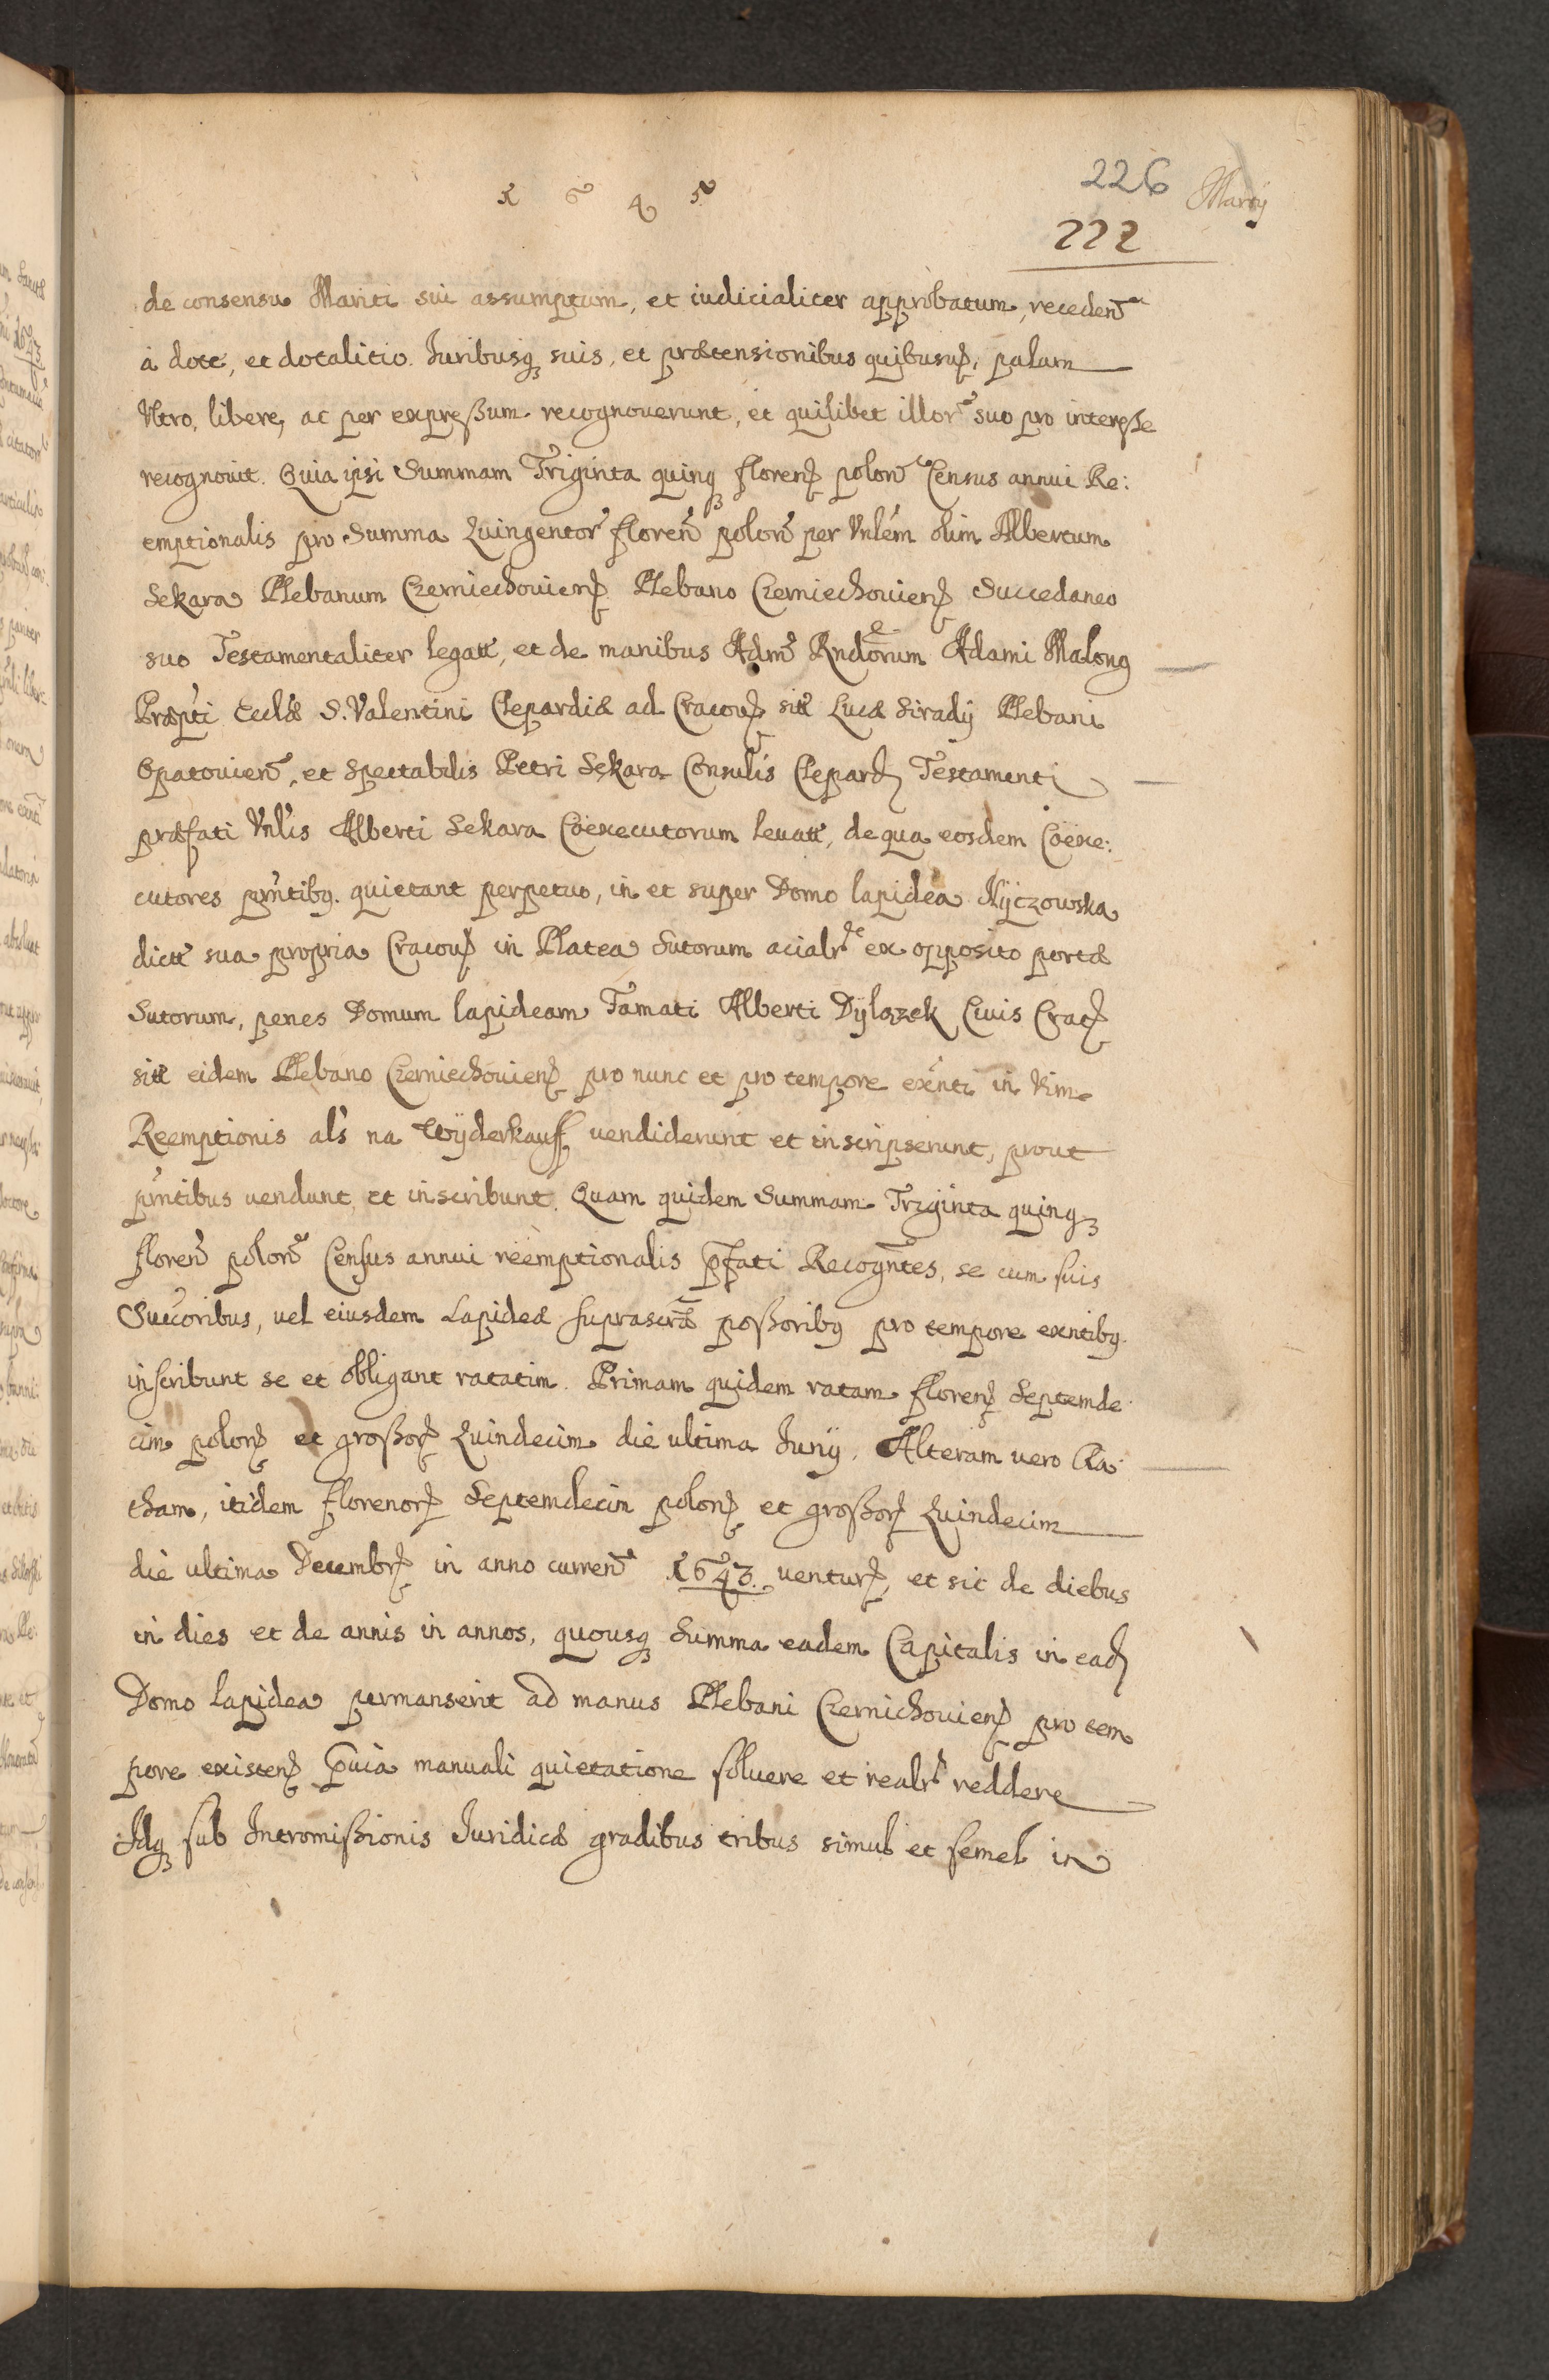 1 6 4 5
226
Martij
222
de consensu Mariti sui assumptum, et iudicialiter approbatum, receden͠
à dote, et dotalitio. Iuribusq; suis, et prætensionibus quibusuis, palam
Vltro, libere, ac per expreßum recognouerunt, et quilibet illor͠ suo pro intereße
recognouit. Quia ipsi Summam Triginta quinq; floren̄ polon͠ Census annui Re:
emptionalis pro Summa Quingentor͠ floren͠ polon͠ per Vnlém olim Albertum
Sekara Plebanum Czerniechouien̄ Plebano Czerniechouien̄ Succedaneo
suo Testamentaliter legatt, et de manibus Adm͠ Rndorum Adami Malong
Præpti Ecclæ S. Valentini Clepardiæ ad Cracou̅ sitt Lucæ Siradij Plebani
Opatouien͠, et Spectabilis Petri Sekara Consulis Clepard̄ Testamenti
præfati Vnlis Alberti Sekara Coëxecutorum leuatt, de qua eosdem Coëxe:
cutores pn̄tibq. quietant perpetuo, in et super Domo lapidea Kÿczowska
dictt sua propria Cracou̅ in Platea Sutorum acialr͠ ex opposito portæ
Sutorum, penes Domum lapideam Famati Alberti Dÿlązek Ciuis Crac̄
sitt eidem Plebano Czerniechouien̄ pro nunc et pro tempore exn̄ti in Vim
Reemptionis als na Wÿderkauff vendiderunt et inscripserunt, prout
pn̄tibus uendunt, et inscribunt. Quam quidem Summam Triginta quinq;
floren͠ polon͠ Census annui reemptionalis p̄fati Recogn̄tes, se cum suis
Succoribus, uel eiusdem Lapideæ suprascr̄æ poßoribq pro tempore exntibq.
inscribunt se et obligant ratatim. Primam quidem ratam floren̄ Septemde
cim polon̄ et großor̄ Quindecim die ultima Junij. Alteram uero Ra:
tham, itidem florenor̄ Septemdecim polon̄ et großor̄ Quindecim
die ultima Decembr̄ in anno curren͠ 1643. uentur̄, et sic de diebus
in dies et de annis in annos, quousq; Summa eadem Capitalis in ead̄
Domo lapidea permanserit ad manus Plebani Czernichouien̄ pro tem
pore existen̄ p̄uia manuali quietatione soluere et realr͠ reddere
Idq; sub Intromißionis Iuridicæ gradibus tribus simul et semel in